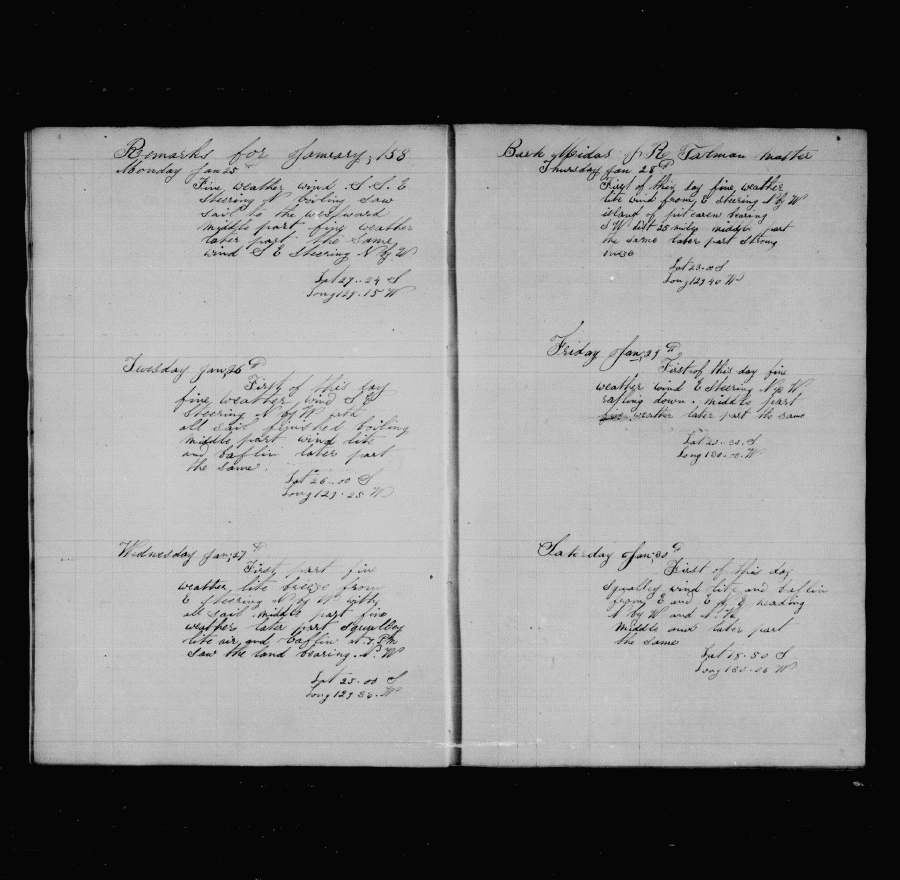 Remarks for January, 158
Monday Jan 25
Fine weather wind S. S. E
Steering N boiling Saw
Sail to the westward
middle part fine weather
later part the same
wind S E Steering N by W
Lat 27..24 S
Long 129.15 W
Tuesday Jan, 26 D
First of this day
fine weather wind S E
Steering N by W with
all sail finished boiling
middle part wind lite
and baflin later part
the same.
Lat 26..00 S
Long 129.25 W
Wednesday Jan, 27 D
First part fin
weather, lite breeze from
E Steering N by W with
all sail middle part fine
weather later part Squalley
lite air and baffin at P M
Saw the land bearing N. W
Lat 25.00 S
Long 129 33. W
Bark Midas J. R Talman master
Thursday Jan 28 D
First of this day fine weather
lite wind from E steering N by W
island of pitcaren bearing
S W dist 25 miles middle part
the same later part Strong
Lat 23.05 S
Long 129 40 W
Friday Jan, 29 D
First of this day fine
weather wind E Steering N W
rafting down. middle part
fine weather later part the same
Lat 20..30. S
Long 130.00. W
Saterday Jan, 30 D
First of this day
Squalley wind lite and baflin
from E and E heading
N by W and N. W
Middle and later part
the same
Lat 18.50 S
Long 130.06 W